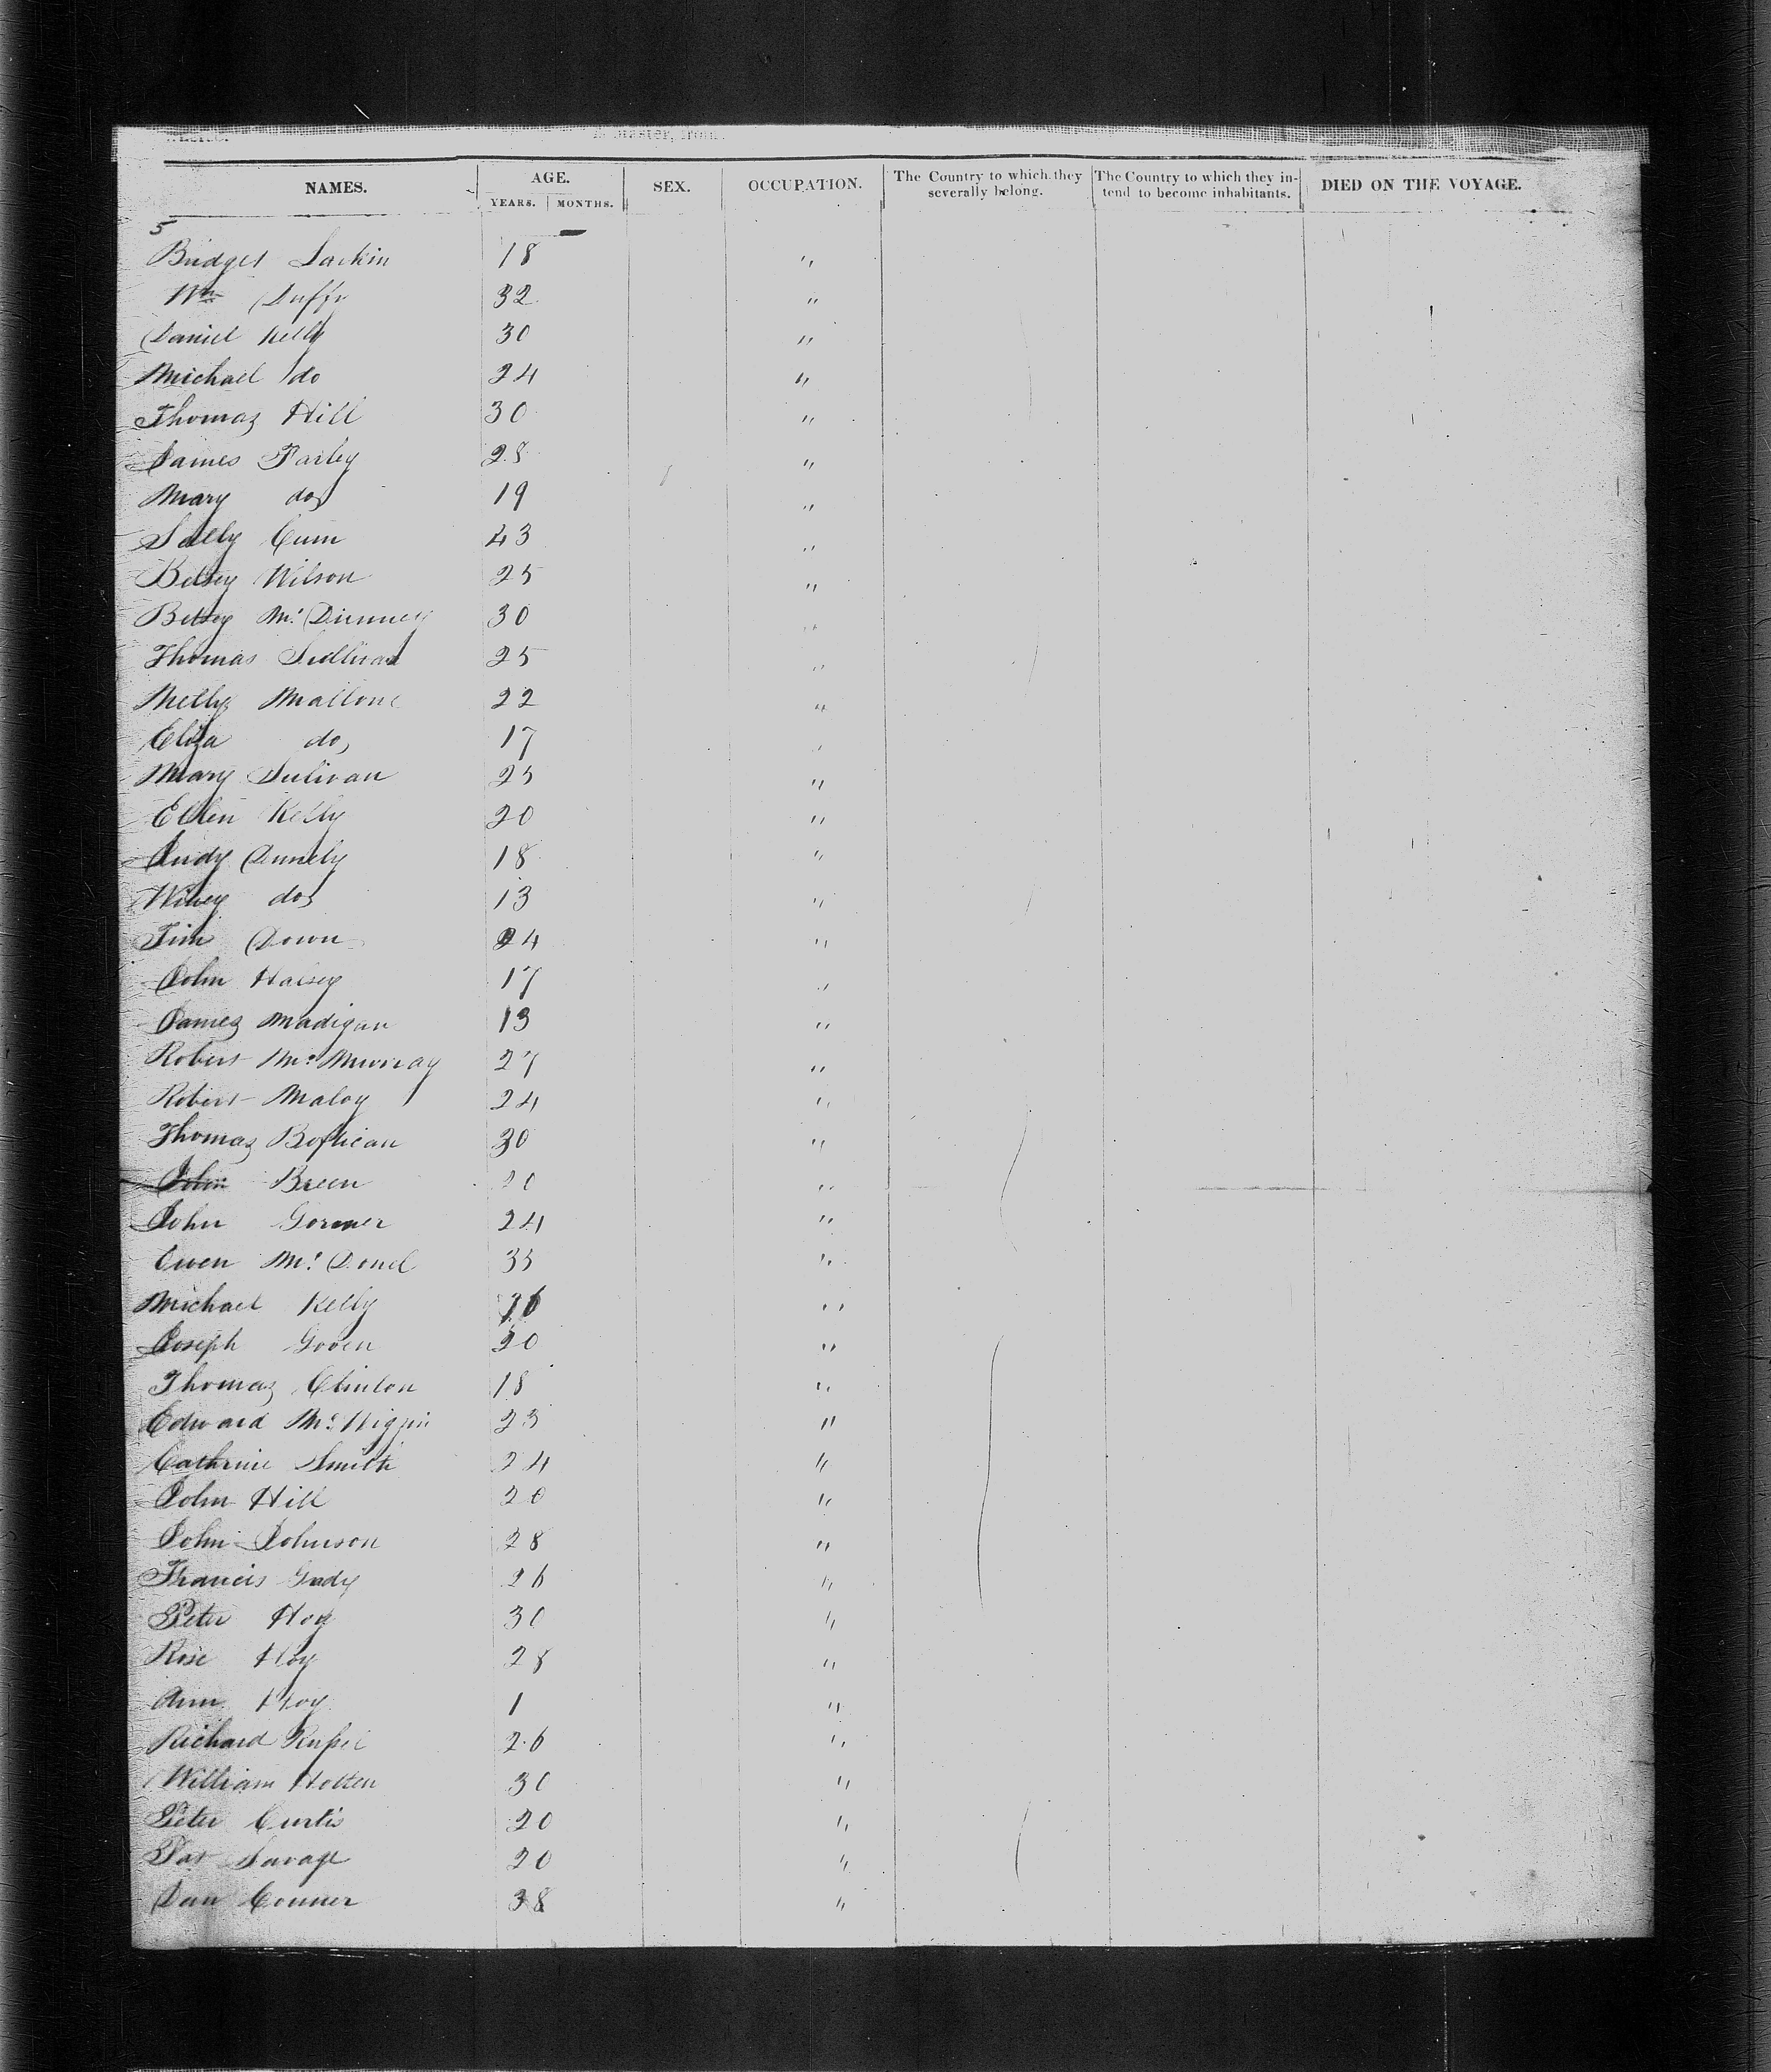 Master, from
NAMES. AGE. SEX. OCCUPATION. The Country to which they severally belong. The Country to which they intend to become inhabitants. DIED ON THE VOYAGE.
YEARS. MONTHS.
5
Bridget Larkin 18 "
Wm Duffy 32 "
Daniel Kelly 30 "
Michael do 24 "
Thomas Hill 30 "
James Farley 28 "
Mary do 19 "
Sally 43 "
Betsey Wilson 25 "
Betsey Mc 30 "
Thomas Sullivan 25 "
Mallone 22 "
Eliza do, 17 "
Mary Sulivan 25 "
Ellen Kelly 20 "
Judy Dunnely 18 "
Winey do 13 "
Tim Down 24 "
John Halsey 17 "
James Madigan 13 "
Robert Mc Murray 27 "
Robert Maloy 24 "
Thomas 30 "
John Breen 20 "
John Gormer 24 "
Owen Mc Donel 35 "
Michael Kelly "
Joseph Goven 20 "
Thomas Clinton 18 "
Edward Mc 23 "
Cathrine Smith 24 "
John Hill 20 "
John Johnson 28 "
Francis Grady 26 "
Peter Hoy 30 "
Rose Hoy 28 "
Ann Hoy 1 "
Richard Russel 26 "
William Holten 30 "
Peter Curtis 20 "
Pat Savage 20 "
Dan Conner 38 "